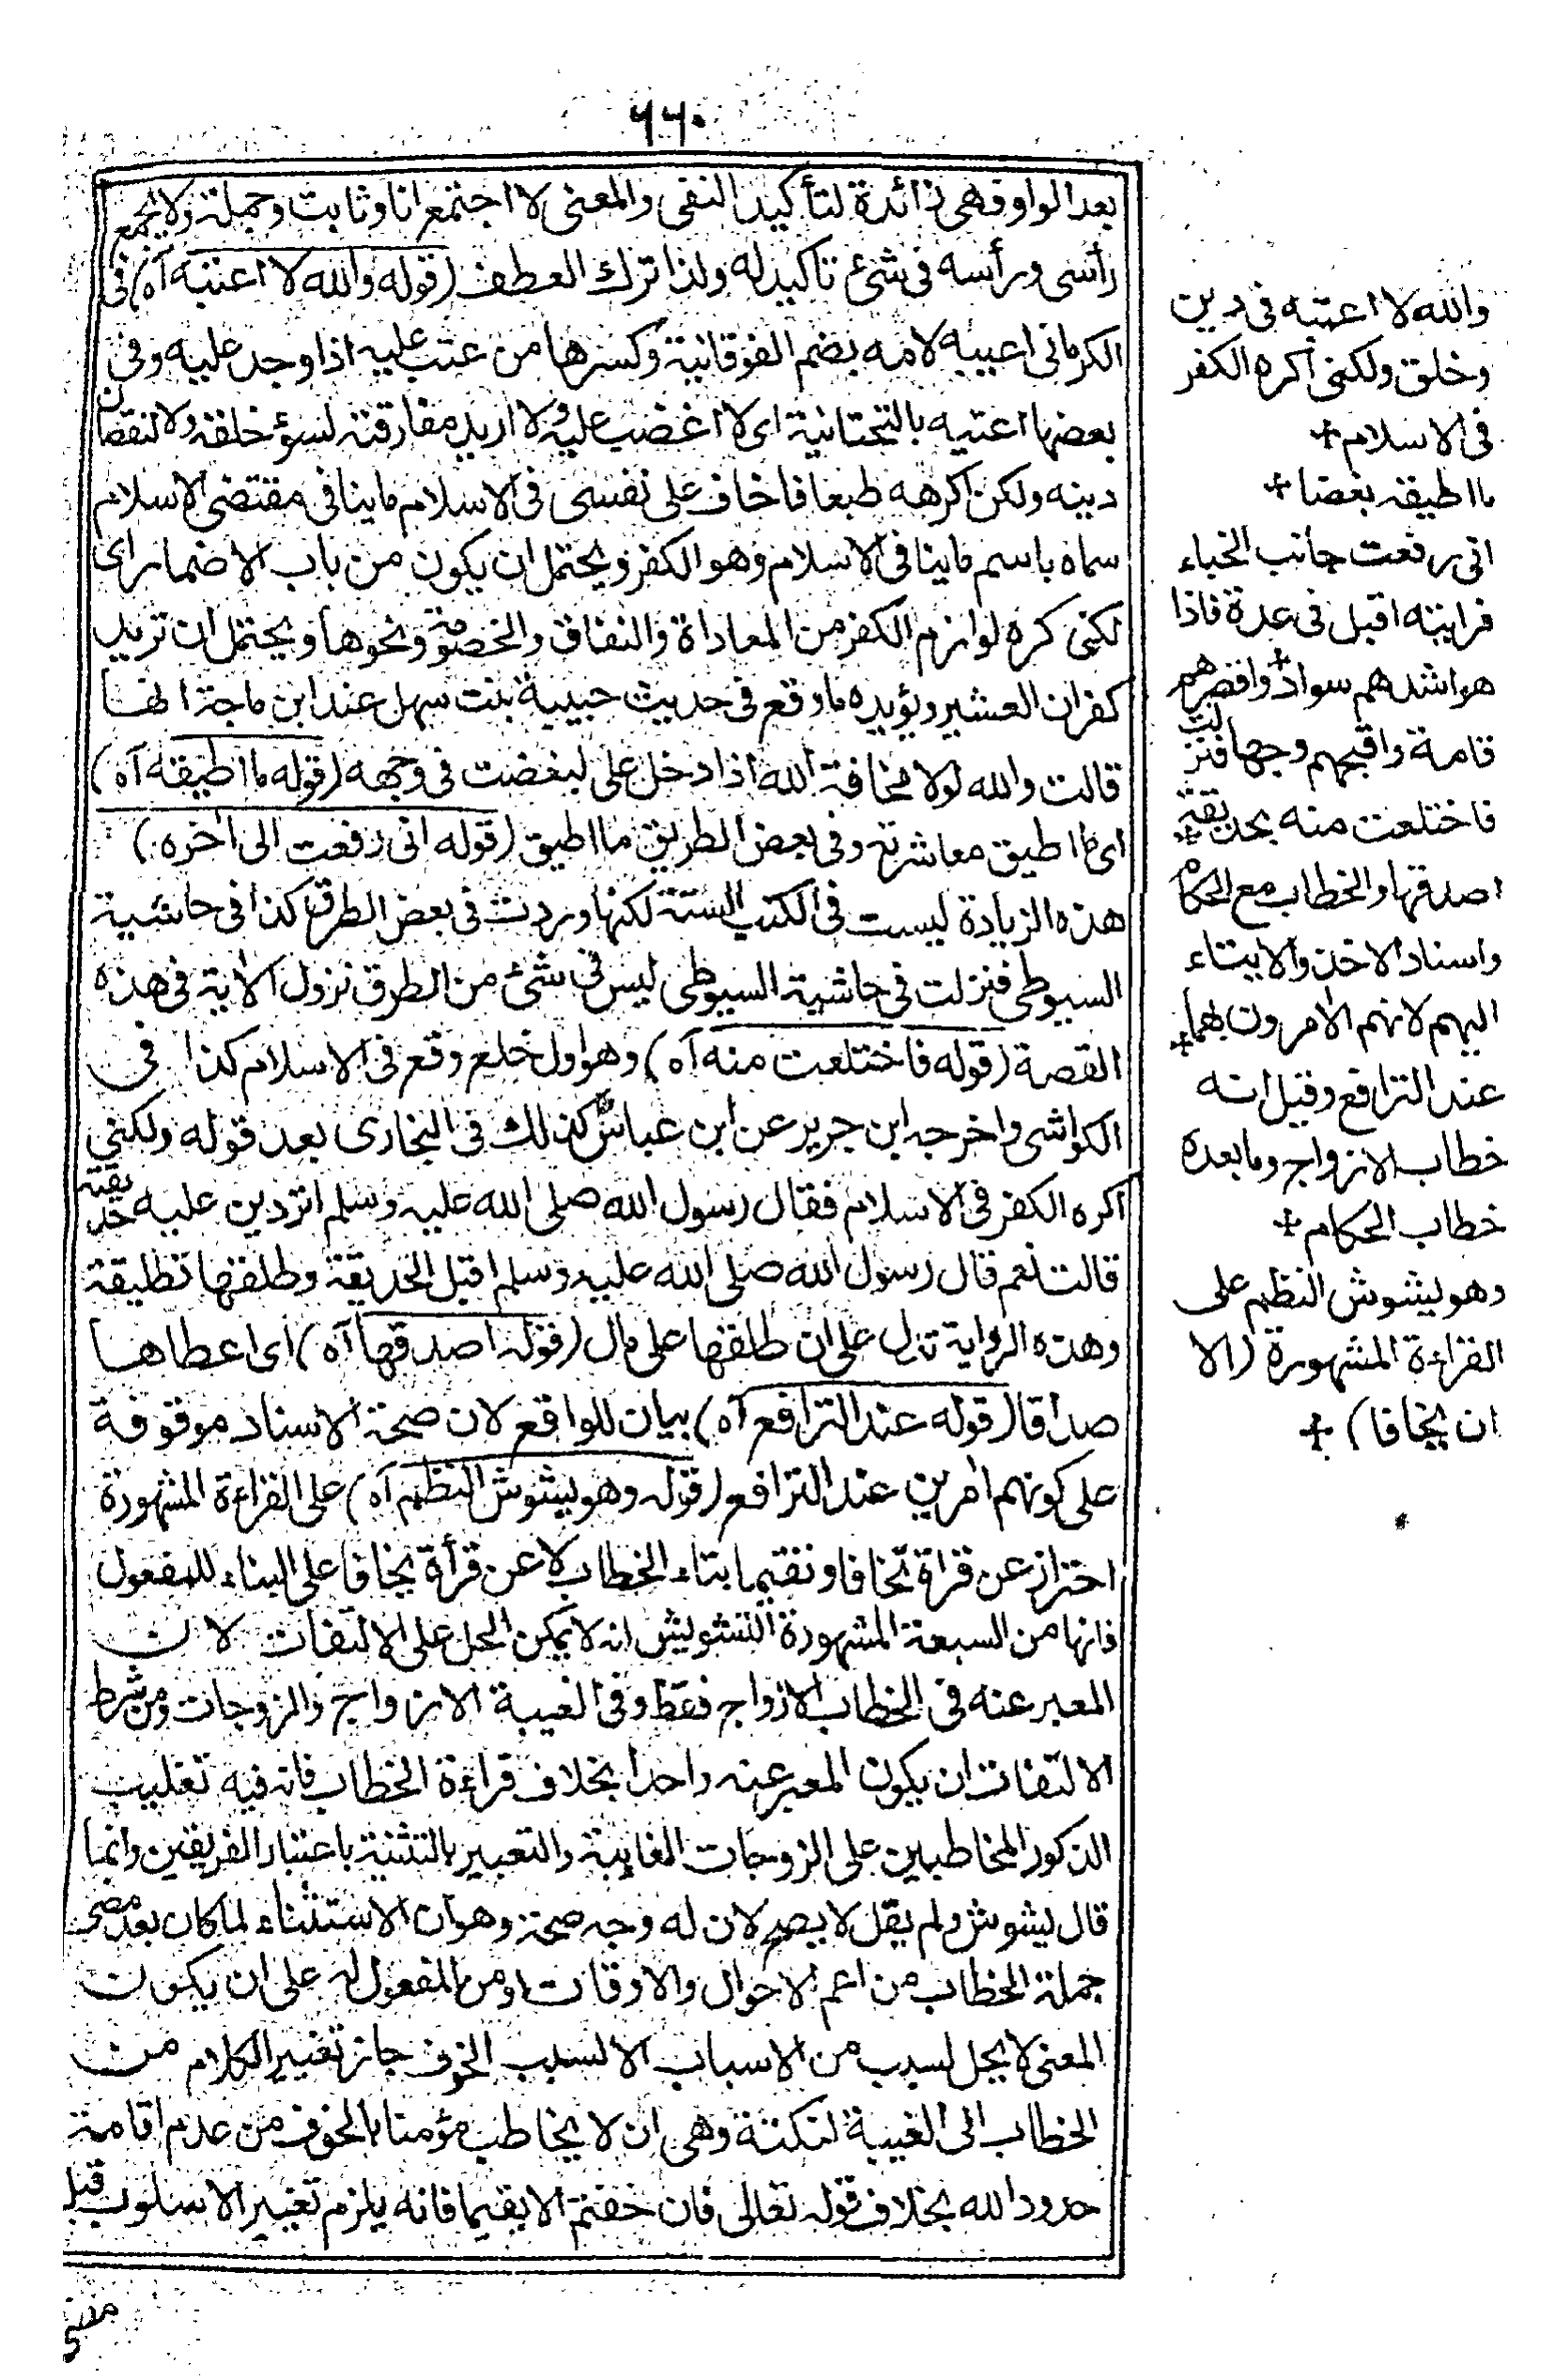 ٦٦٠
بعد الواو فهى زائدة لتأكيد النفى والمعنى لا اجتمع انا وثابت وجملة ولا يجمع
رأسى ورأسه فى شئ تاكيد له ولذا ترك العطف (قوله والله لا اعتبه آه) فى
الكرمانى اعيبه لامه بضم الفوقانية وكسرها من عتب عليه اذا وجد عليه وفى
بعضها اعتيه بالتحتانية اى لا اغضب عليه ولا اريد مفارقته لسوء خلقه ولا لنقصان
دينه ولكن اكرهه طبعا فاخاف على نفسى فى الاسلام ما ينافى مقتضى الاسلام
سماه باسم ما ينافى الاسلام وهو الكفر ويحتمل ان يكون من باب الاضمار اى
لكنى كره لوازم الكفر من المعاداة والنفاق والخصومة ونحوها ويحتمل ان تريد
كفران العشير ويؤيده ما وقع فى حديث حبيبة بنت سهل عند ابن ماجة انها
قالت والله لولا مخافة الله اذا دخل على لبغضت فى وجهه (قوله ما اطيقه آه)
اى ما اطيق معاشرته وفى بعض الطريق ما اطيق (قوله انى رفعت الى آخره)
هذه الزيادة ليست فى الكتب الستة لكنها وردت فى بعض الطرق كذا فى حاشية
السيوطى فنزلت فى حاشية السيوطى ليس فى شئ من الطرق نزول الآية فى هذه
القصة (قوله فاختلعت منه آه) وهو اول خلع وقع فى الاسلام كذا فى
الكواشى واخرجه ابن جرير عن ابن عباس كذلك فى البخارى بعد قوله ولكنى
اكره الكفر فى الاسلام فقال رسول الله صلى الله عليه وسلم اتردين عليه حديقته
قالت نعم قال رسول الله صلى الله عليه وسلم اقبل الحديقة وطلقها تطليقة
وهذه الرواية تدل على ان طلقها على مال (قوله اصدقها آه) اى اعطاها
صداقا (قوله عند الترافع آه) بيان للواقع لان صحة الاسناد موقوفة
على كونهم آمرين عند الترافع (قوله وهو يشوش النظم آه) على القراءة المشهورة
احتراز عن قراة تخافا وتقيما بتاء الخطاب لا عن قرأة يخافا على البناء للمفعول
فانها من السبعة المشهورة التشويش انه لا يمكن الحمل على الالتفات لان
المعبر عنه فى الخطاب الازواج فقط وفى الغيبة الازواج والزوجات ومن شرط
الالتفات ان يكون المعبر عنه واحدا بخلاف قراءة الخطاب فانه فيه تغليب
الذكور المخاطبين على الزوجات الغايبة والتعبير بالتثنية باعتبار الفريقين وانما
قال يشوش ولم يقل لا يصح لان له وجه صحة وهو ان الاستثناء لما كان بعد مضى
جملة الخطاب من اعم الاحوال والاوقات او من المفعول له على ان يكون
المعنى لا يحل لسبب من الاسباب الا لسبب الخوف جاز تغيير الكلام من
الخطاب الى الغيبة لنكتة وهى ان لا يخاطب مؤمنا بالخوف من عدم اقامة
حدود الله بخلاف قوله تعالى فان خفتم الا يقيما فانه يلزم تغيير الاسلوب قبل
مضى
والله لا اعتبه فى دين
وخلق ولكنى اكره الكفر
فى الاسلام
ما اطيقه بغضا
انى رفعت جانب الخباء
فرايته اقبل فى عدة فاذا
هو اشدهم سوادا واقصرهم
قامة واقبحهم وجها فنزلت
فاختلعت منه بحديقة
اصدقها والخطاب مع الحكام
واسناد الاخذ والايتاء
اليهم لانهم الآمرون بهما
عند الترافع وقيل انه
خطاب الازواج وما بعده
خطاب الحكام
وهو يشوش النظم على
القراءة المشهورة (الا
ان يخافا)